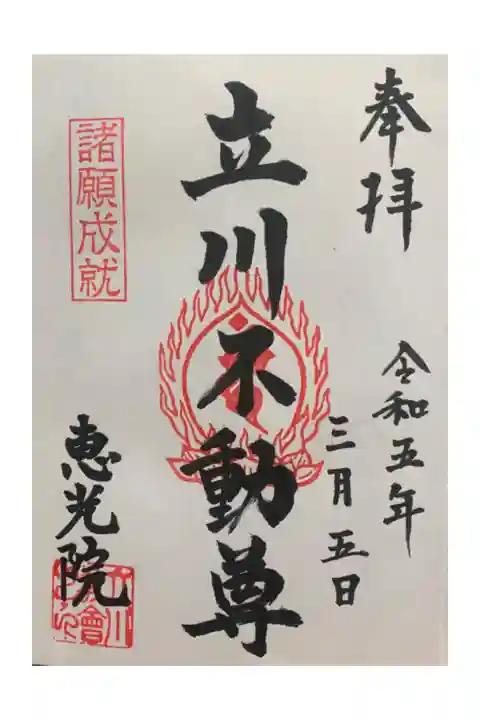 奉拝
令和五年
三月五日
立川不動尊
諸願成就
恵光院